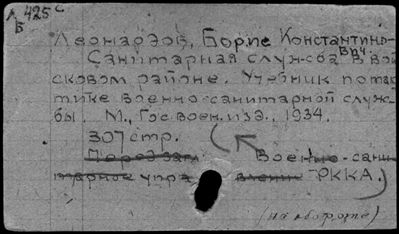 А 425 с
Б
Леонардов, Борис Константино-
вич.
Санитарная служба в вой
сковом районе. Учебник по так
тике военно-санитарной служ
бы. М., Гос воен. изд., 1934.
307 стр.
Перед заг. Военно-сани
тарное упра влении РККА.)
(на обороте)